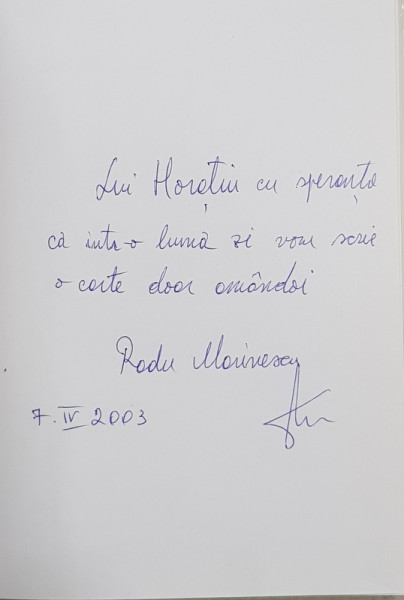 Lui Horațiu cu speranța
că într-o lumă zi vom scrie
o carte doar amândoi
Radu Marinescu
7. IV 2003